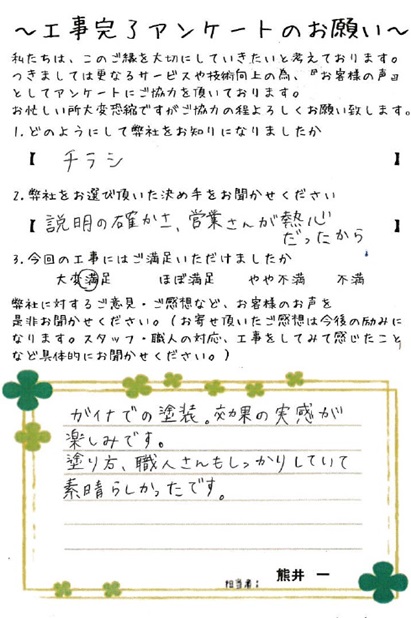 ～工事完了アンケートのお願い～
私たちは、このご縁を大切にしていきたいと考えております。
つきましては更なるサービスや技術向上の為、『お客様の声』
としてアンケートにご協力を頂いております。
お忙しい所大変恐縮ですがご協力の程よろしくお願い致します。
1.どのようにして弊社をお知りになりましたか
【 チラシ 】
2.弊社をお選び頂いた決め手をお聞かせください
【 説明の確かさ、営業さんが熱心
だったから 】
3.今回の工事にはご満足いただけましたか
大変満足 ほぼ満足 やや不満 不満
弊社に対するご意見・ご感想など、お客様のお声を
是非お聞かせください。(お寄せ頂いたご感想は今後の励みに
なります。スタッフ・職人の対応、工事をしてみて感じたこと
など具体的にお聞かせください。)
ガイナでの塗装。効果の実感が
楽しみです。
塗り方、職人さんもしっかりしていて
素晴らしかったです。
担当者: 熊井 一